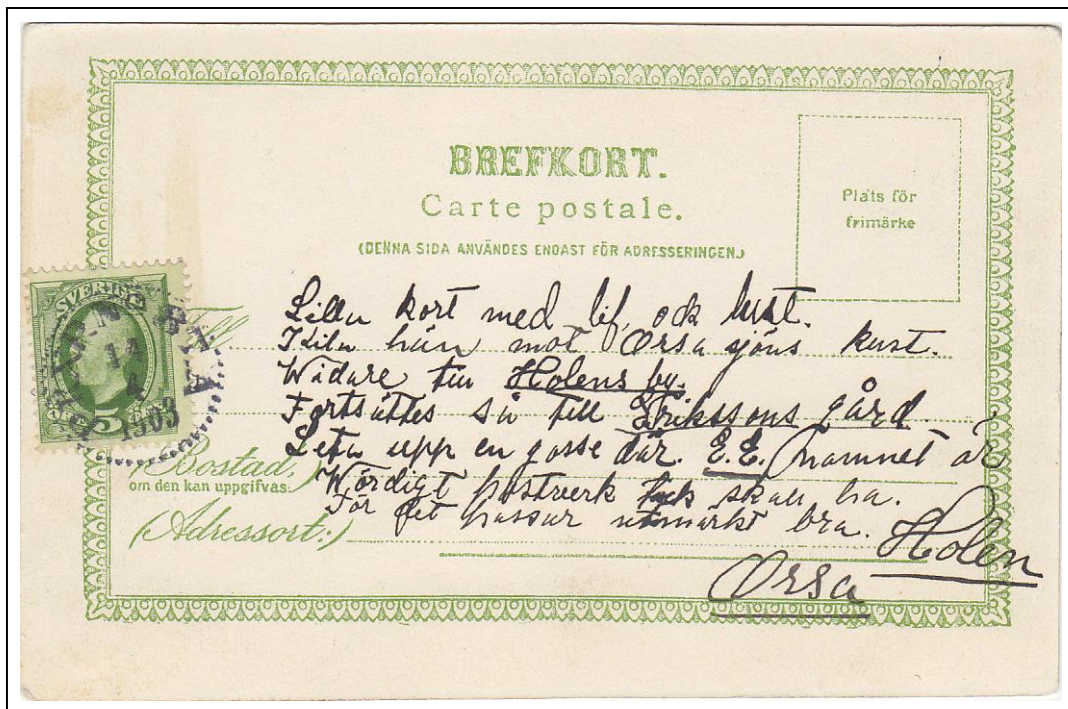 BREFKORT.
Carte postale.
(DENNA SIDA ANVÄNDES ENDAST FÖR ADRESSERINGEN.)
Plats för
frimärke
SVERIGE
14
4
1903
5
Till
Lilla kort med lif och lust.
Kila hän mot Orsa sjöns kust.
Widare till Holens by.
Fortsättes så till Erikssons gård
Leta upp en gosse där. E.E. namnet är
Wördigt postverk tack skall ha.
För det passar utmärkt bra.
Holen
Orsa
(Bostad,)
om den kan uppgifvas:
(Adressort:)